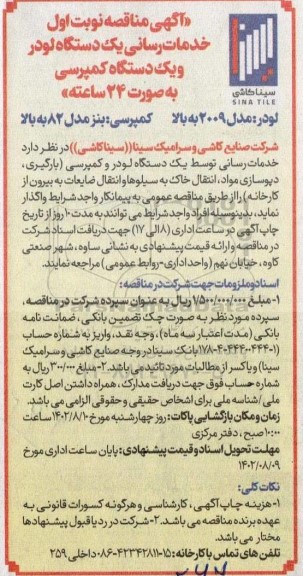 «آگهی مناقصه نوبت اول
خدمات رسانی یک دستگاه لودر
و یک دستگاه کمپرسی
به صورت ۲۴ ساعته»
سیناکاشی
SINA TILE
لودر: مدل ۲۰۰۹ به بالا کمپرسی: بنز مدل ۸۲ به بالا
شرکت صنایع کاشی و سرامیک سینا ((سیناکاشی)) در نظر دارد
خدمات رسانی توسط یک دستگاه لودر و کمپرسی (بارگیری،
دپوسازی مواد، انتقال خاک به سیلوها و انتقال ضایعات به بیرون از
کارخانه) از طریق مناقصه عمومی به پیمانکار واجد شرایط واگذار
نماید، بدینوسیله افراد واجد شرایط می توانند به مدت ۱۰ روز از تاریخ
چاپ آگهی در ساعت اداری (۸ الی ۱۷) جهت دریافت اسناد شرکت
در مناقصه و ارائه قیمت پیشنهادی به نشانی ساوه، شهر صنعتی
کاوه، خیابان نهم (واحد اداری-روابط عمومی) مراجعه نمایند.
اسناد و ملزومات جهت شرکت در مناقصه:
۱- مبلغ ۱/۵۰۰/۰۰۰/۰۰۰ ریال به عنوان سپرده شرکت در مناقصه،
سپرده مورد نظر به صورت چک تضمین بانکی، ضمانت نامه
بانکی (مدت اعتبار سه ماه)، وجه نقد، واریز به شماره حساب
بانک سینا در وجه صنایع کاشی و سرامیک
سینا) و یا کسر از مطالبات مورد تائید می باشد. ۲- مبلغ ۳۰۰/۰۰۰ ریال به
شماره حساب فوق جهت دریافت مدارک، همراه داشتن اصل کارت
ملی/شناسه ملی برای اشخاص حقیقی و حقوقی الزامی می باشد.
زمان و مکان بازگشایی پاکات: روز چهارشنبه مورخ ۱۴۰۲/۸/۱۰ ساعت
۱۰:۰۰ صبح، دفتر مرکزی
مهلت تحویل اسناد و قیمت پیشنهادی: پایان ساعت اداری مورخ
۱۴۰۲/۰۸/۰۹
نکات کلی:
۱- هزینه چاپ آگهی، کارشناسی و هرگونه کسورات قانونی به
عهده برنده مناقصه می باشد. ۲- شرکت در رد یا قبول پیشنهادها
مختار می باشد.
تلفن های تماس با کارخانه: ۱۵-۴۲۳۴۲۸۱۱-۰۸۶ داخلی ۲۵۹